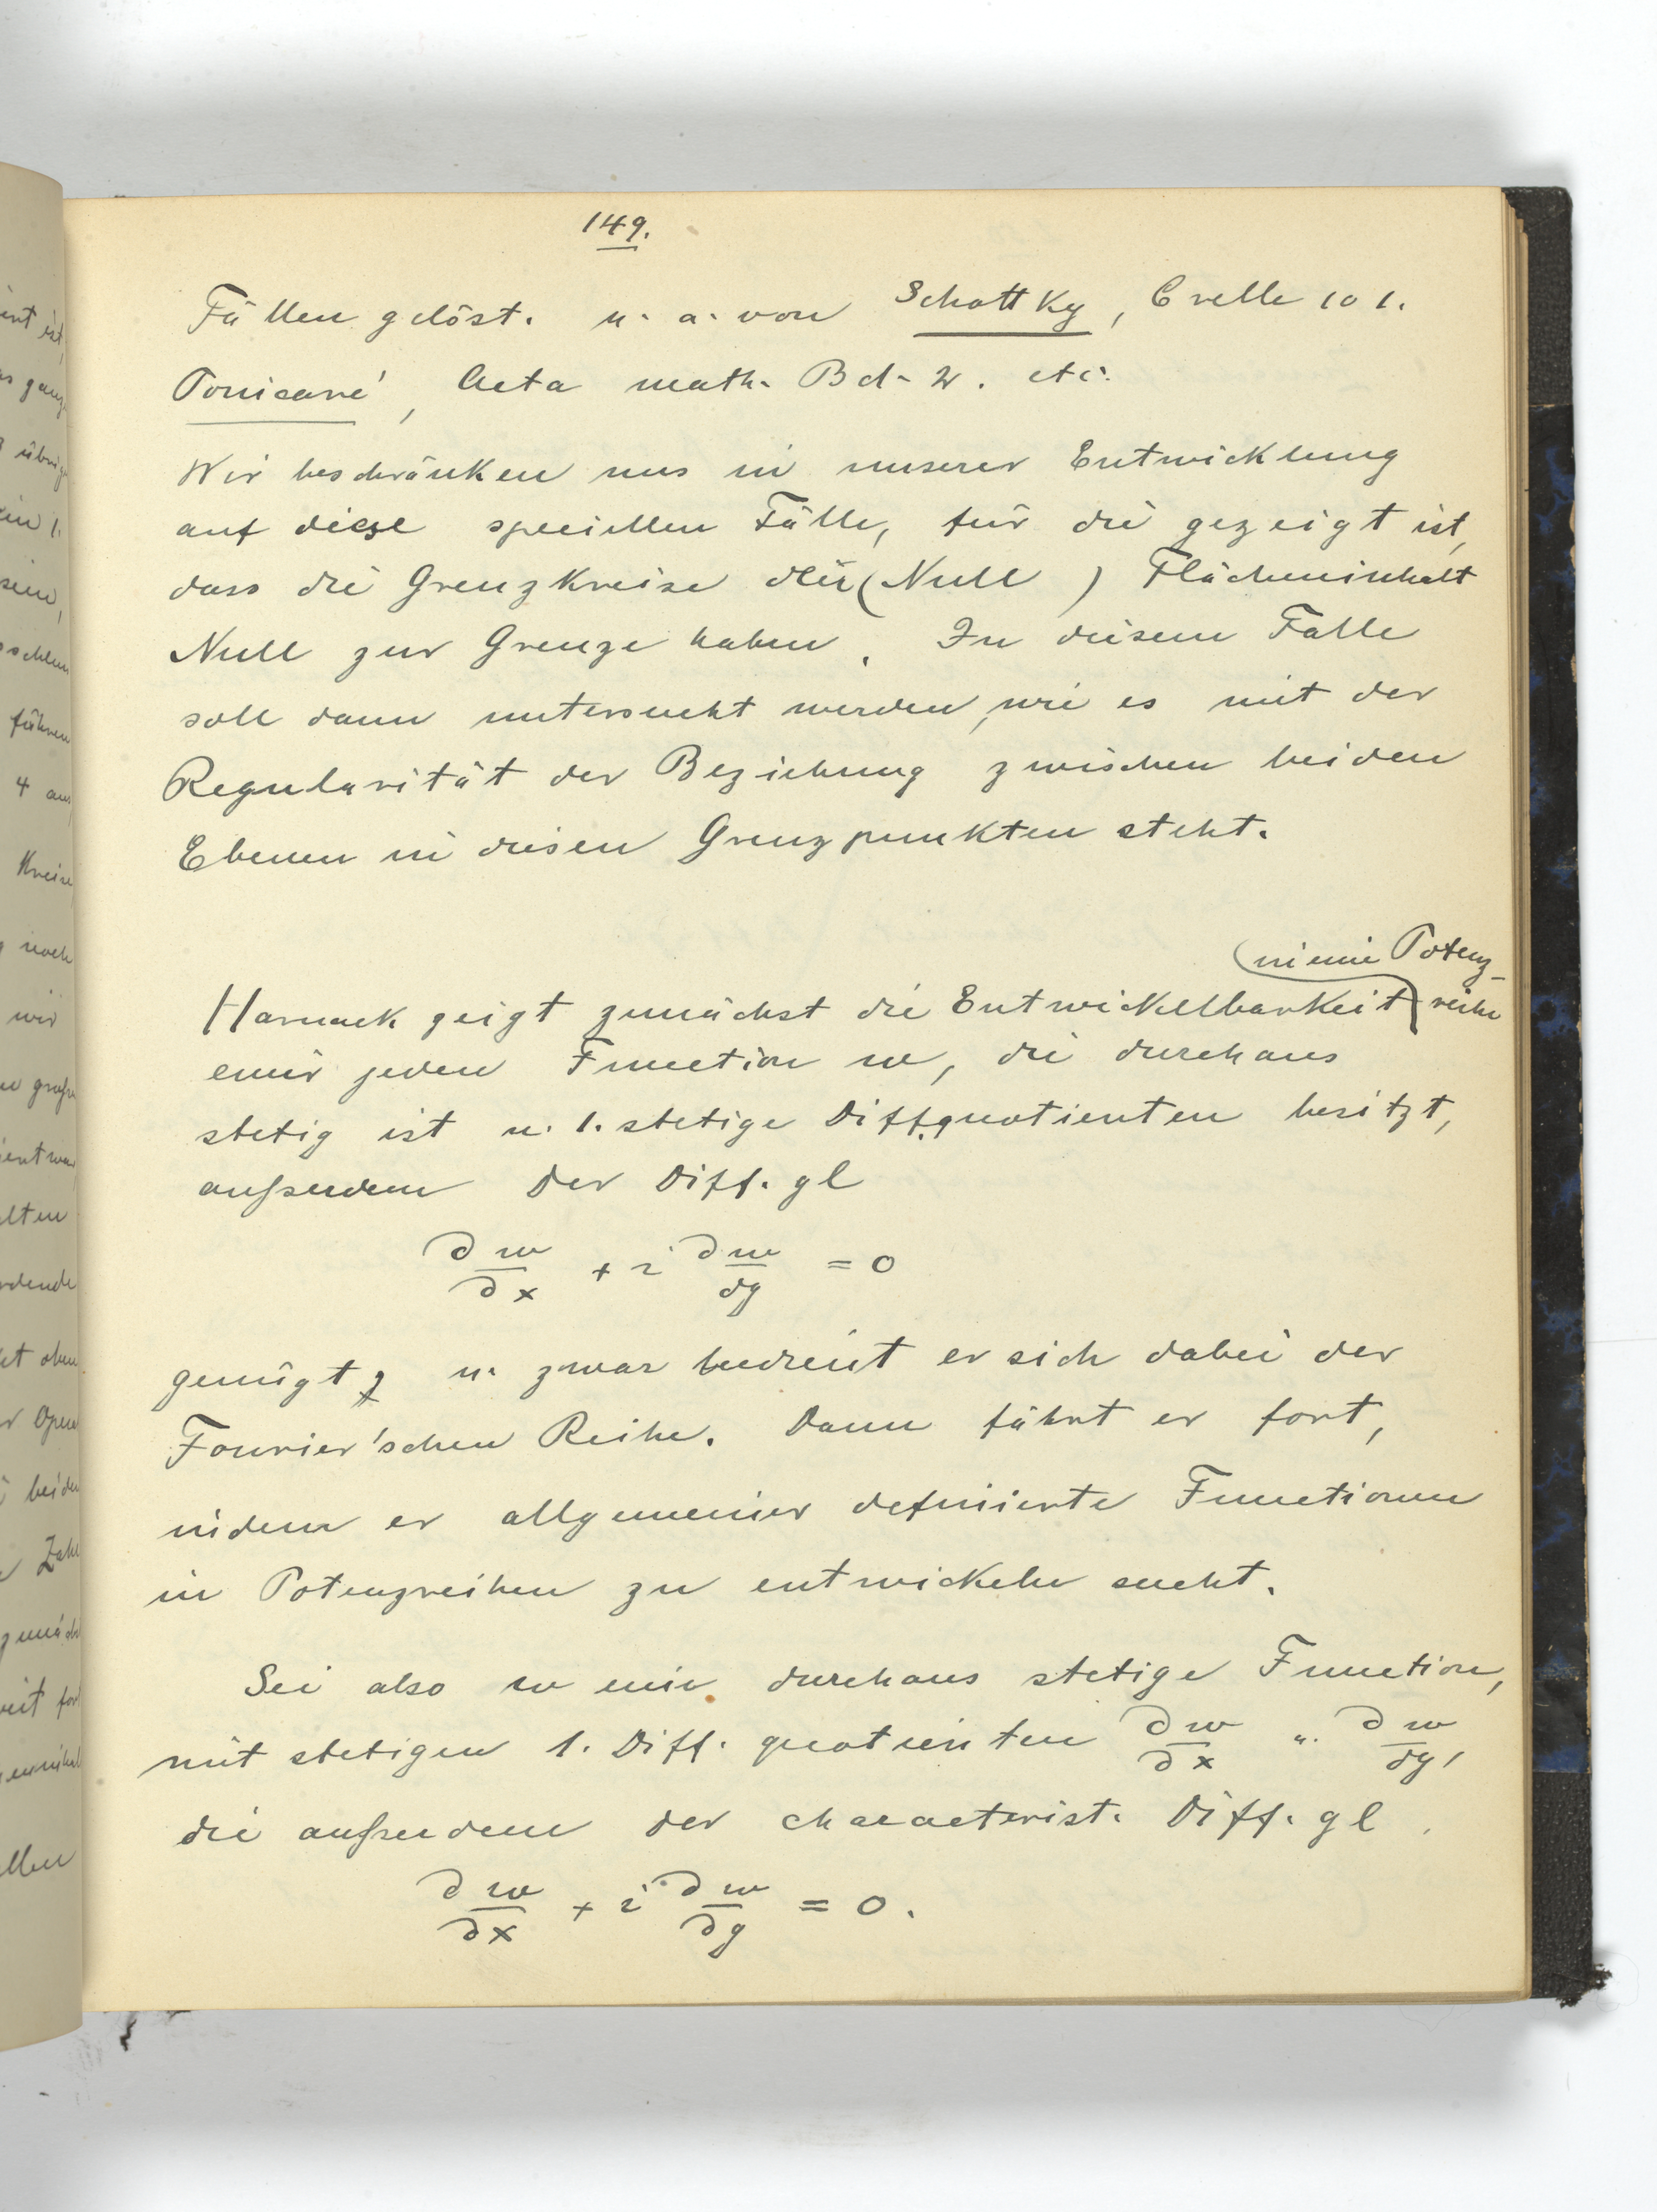 149.
Fällen gelöst. u. a. von Schottky, Crelle 101.
Poincaré, Acta math. Bd. 2. etc.
Wir beschränken uns in unserer Entwicklung
auf diese speciellen Fälle, für die gezeigt ist,
dass die Grenzkreise den (Null) Flächeninhalt
Null zur Grenze haben. In diesem Falle
soll dann untersucht werden, wie es mit der
Regularität der Beziehung zwischen beiden
Ebenen in diesen Grenzpunkten steht.
(in eine Potenz-
Harnack zeigt zunächst die Entwickelbarkeit) reihe
einer jeden Function w, die durchaus
stetig ist u. 1. stetige Diff.quotienten besitzt,
außerdem der Diff. gl
∂w/∂x + i ∂w/∂y = 0
genügt, u. zwar bedient er sich dabei der
Fourier'schen Reihe. Dann fährt er fort,
indem er allgemeiner definierte Functionen
in Potenzreihen zu entwickeln sucht.
Sei also w eine durchaus stetige Function,
mit stetigen 1. Diff. quotienten ∂w/∂x u. ∂w/∂y,
die außerdem der characterist. Diff. gl.
∂w/∂x + i ∂w/∂y = 0.